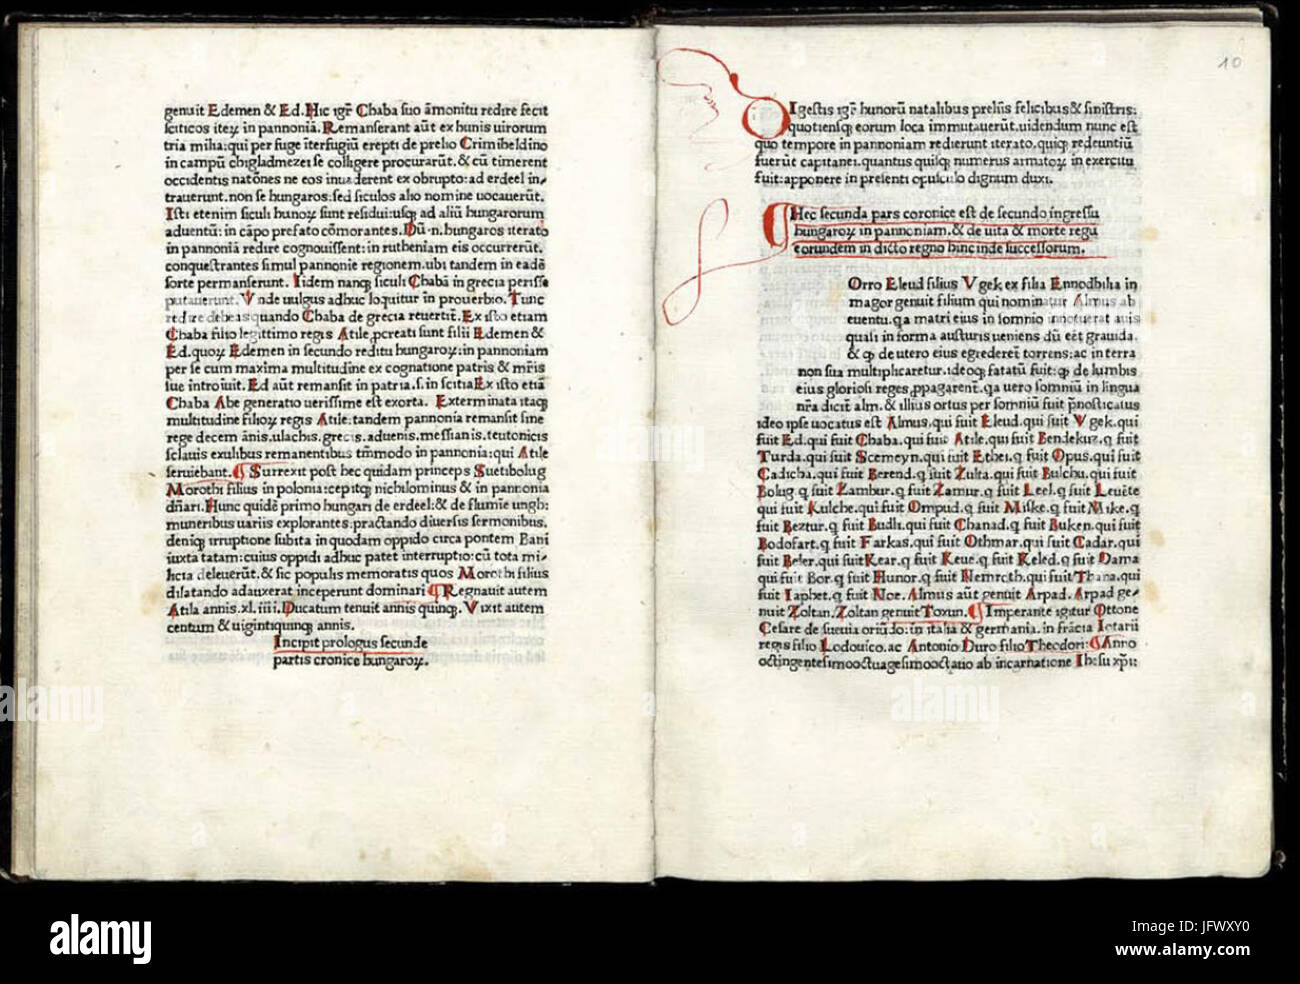 genuit Edemen & Ed. Hic igr̃ Chaba suo ãmonitu redire fecit
sciticos iteꝝ in pannoniã. Remanserant aũt ex hunis uirorum
tria milia: qui per fuge ĩterfugiũ erepti de prelio Crimiheldino
in campũ chigladmezei se colligere procurarũt. & cũ timerent
occidentis natõnes ne eos inuaderent ex obrupto: ad erdeel in,
trauerunt. non se hungaros: sed siculos alio nomine uocauerũt.
Isti etenim siculi hunoꝝ sunt residui: usq; ad aliũ hungarorum
aduentũ: in cãpo prefato cõmorantes. Dũ .n. hungaros iterato
in pannoniã redire cognouissent: in rutheniam eis occurrerũt.
conquestrantes simul pannonie regionem. ubi tandem in eadẽ
sorte permanserunt. Iidem nanq; siculi Chabã in grecia perisse
putauerunt. Vnde uulgus adhuc loquitur in prouerbio. Tunc
redire debeas quando Chaba de grecia reuertit̃. Ex isto etiam
Chaba filio legittimo regis Atile ꝓcreati sunt filii Edemen &
Ed. quoꝝ Edemen in secundo reditu hungaroꝝ: in pannoniam
per se cum maxima multitudine ex cognatione patris & mr̃is
sue introiuit. Ed aũt remansit in patria .s. in scitia Ex isto etiã
Chaba Abe generatio uerissime est exorta. Exterminata itaq;
multitudine filioꝝ regis Atile: tandem pannonia remansit sine
rege decem ãnis. ulachis. grecis. aduenis. messianis. teutonicis
sclauis exulibus remanentibus tm̃modo in pannonia: qui Atile
seruiebant. ¶ Surrexit post hec quidam princeps Suetibolug
Morothi filius in polonia: cepitq; nichilominus & in pannonia
dñari. Hunc quidẽ primo hungari de erdeel: & de flumie ungh:
muneribus uariis explorantes: practando diuersis sermonibus.
deniq; irruptione subita in quodam oppido circa pontem Bani
iuxta tatam: cuius oppidi adhuc patet interruptio: cũ tota mi,
licia deleuerũt. & sic populis memoratis quos Morothi filius
dilatando adauxerat inceperunt dominari ¶ Regnauit autem
Atila annis .xl.iiii. Ducatum tenuit annis quinq;. Vixit autem
centum & uigintiquinq; annis.
Incipit prologus secunde
partis cronice hungaroꝝ.
10
DIgestis igr̃ hunorũ nataIibus preliis felicibus & sinistris:
quotiensq; eorum loca immutauerũt. uidendum nunc est
quo tempore in pannoniam redierunt iterato. quiq; redeuntiũ
fuerũt capitanei. quantus quisq; numerus armatoꝝ in exercitu
fuit: apponere in presenti opusculo dignum duxi.
¶ Hec secunda pars coronice est de secundo ingressu
hungaroꝝ in pannoniam. & de uita & morte regũ
eorundem in dicto regno hinc inde successorum.
Orro Eleud filius Vgek ex filia Ennodbilia in
magor genuit filium qui nominatur Almus ab
euentu. qa matri eius in somnio innotuerat auis
quasi in forma austuris ueniens dũ eēt grauida.
& ꝙ de utero eius egrederet̃ torrens: ac in terra
non sua multiplicaretur. ideoq; fatatũ fuit: ꝙ de lumbis
eius gloriosi reges ꝓpagarent̃. qa uero somniũ in lingua
nr̃a dicit̃ alm. & illius ortus per somniũ fuit p̃nosticatus
ideo ipse uocatus est Almus, qui fuit Eleud. qui fuit Vgek. qui
fuit Ed. qui fuit Chaba. qui fuit Atile. qui fuit Bendekuz. q fuit
Turda. qui fuit Scemeyn. qui fuit Ethei. q fuit Opus. qui fuit
Cadicha. qui fuit Berend. q fuit Zulta. qui fuit Bulchu. qui fuit
Bolug. q̃ fuit Zambur. q fuit Zamur. q fuit Leel. q̃ fuit Leuẽte
qui fuit Kulche. qui fuit Ompud. q̃ fuit Miske. q̃ fuit Mike. q̃
fuit Beztur. q̃ fuit Budli. qui fuit Chanad. q fuit Buken. qui fuit
Bodofart. q̃ fuit Farkas. qui fuit Othmar. qui fuit Cadar. qui
fuit Beler. qui fuit Kear. q̃ fuit Keue. q fuit Keled. q̃ fuit Dama
qui fuit Bor. q̃ fuit Hunor. q fuit Nemroth. qui fuit Thana. qui
fuit Iaphet. q̃ fuit Noe. Almus aũt genuit Arpad. Arpad ge-
nuit Zoltan. Zoltan genuit Toxun. ¶ Imperante igitur Ottone
Cesare de sueuia oriũdo: in italia & germania. in frãcia Lotarii
regis filio Lodouico. ac Antonio Duro filio Theodori: ¶ Anno
octingentesimooctuagesimooctauo ab incarnatione Ihesu xp̃i:
alamy
alamy
alamy
alamy
alamy
Image ID: JFWXY0
www.alamy.com